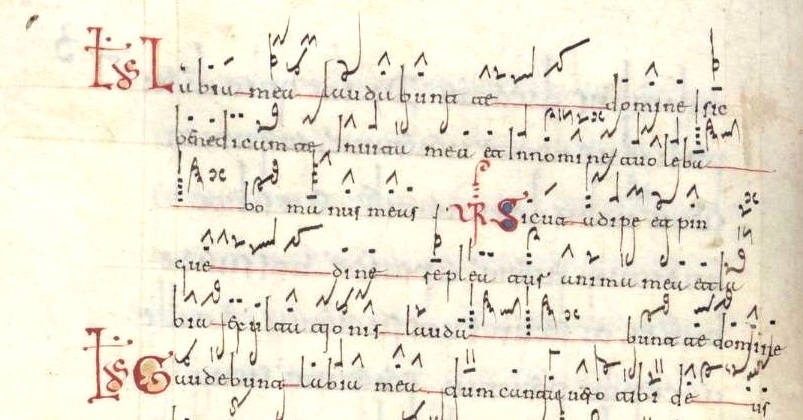 Labia mea laudabunt te domine sic
benedicam te Inuita mea et Innomine tuo leba
bo manus meas VR Sicut adipe et pin
gue dine repleta est anima mea et la
bia exultationis lauda bunt te domine
Gaudebunt labia mea dum cantauero tibi de us